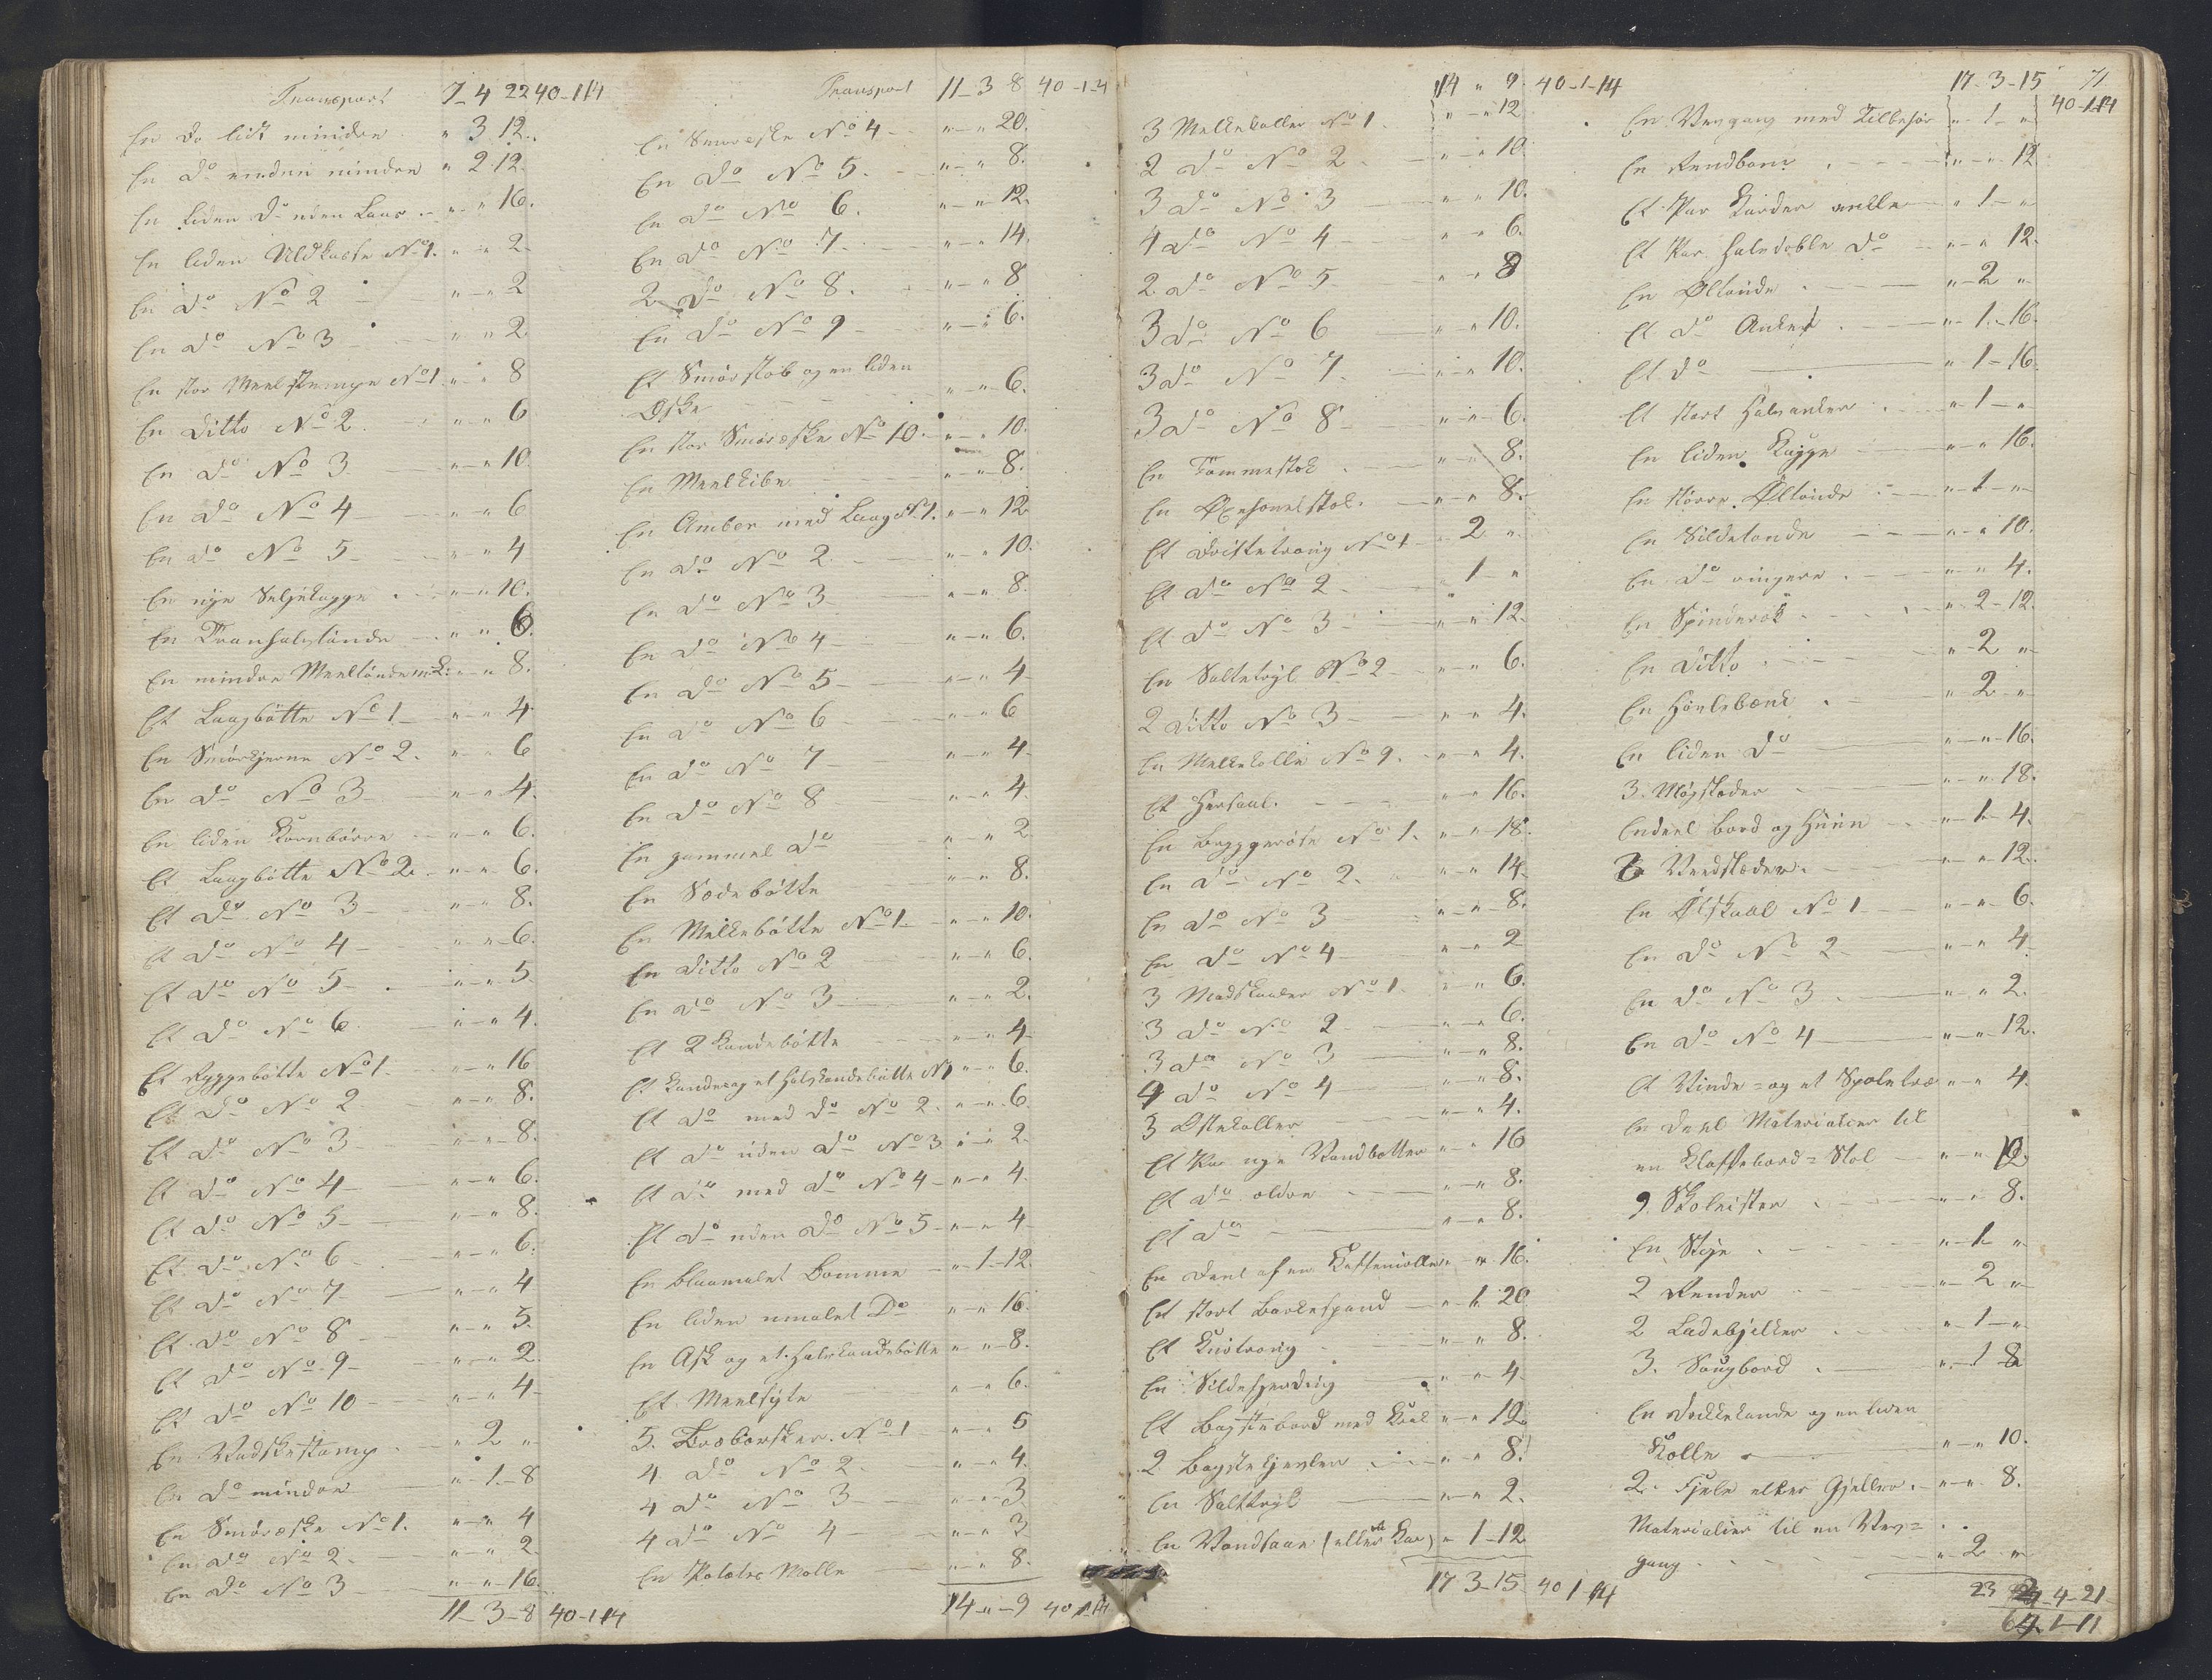 Transport 7 4 22 40-1-14
En do lidt mindre " 3 12.
En do enden mindre " 2 12.
En liden do uden Laas " " 16.
En liden Uldkasse No 1. " " 2
En do No 2 " " 2
En do No 3 " " 2
En stor Meelstampe No 1 " " 8
En ditto No 2. " " 6
En do No 3 " " 10
En do No 4 " " 6
En do No 5 " " 4
En nye Seljekagge " " 10.
En Tranhalvtönde " " 6.
En mindre Meeltönde " " 8.
Et Laagbötte No 1 " " 4
En Smörkjerne No 2. " " 6
En do No 3 " " 4.
En liden Kornbörre " " 6.
Et Laagbötte No 2. " " 6.
Et do No 3 " " 8.
Et do No 4 " " 6.
Et do No 5 " " 5
Et do No 6 " " 4.
Et Ryggebötte No 1. " " 16
Et do No 2 " " 8.
Et do No 3 " " 8.
Et do No 4 " " 6.
Et do No 5 " " 8.
Et do No 6 " " 6.
Et do No 7 " " 4
Et do No 8 " " 5.
Et do No 9 " " 2
Et do No 10 " " 4
En Vadskestamp " 2 "
En do mindre " 1 8
En Smöræske No 1. " " 4
En do No 2. " " 2.
En do No 3 " " 16.
11-3-8 40-1-14
Transport 11-3 8 40-1-4
En Smöræske No 4 " " 20.
En do No 5. " " 8.
En do No 6. " " 12.
En do No 7. " " 14.
2 do No 8. " " 8
En do No 9 " " 6.
Et Smörstob og en liden
Æske " " 6.
En stor Smöræske No 10. " " 10.
En Meelkibe " " 8.
En Amber med Laag No 1. " " 12
En do No 2. " " 10.
En do No 3 " " 8.
En do No 4 " " 6.
En do No 5 " " 4
En do No 6 " " 6
En do No 7 " " 4.
En do No 8 " " 4.
En gammel do " " 2
En Sædebötte " " 8.
En Melkebötte No 1. " " 10.
En ditto No 2 " " 6.
En do No 3 " " 2.
Et 2 Kandebötte " " 4
Et Kande og et halvkandebötte No 1 " " 6.
Et do med do No 2. " " 6
Et do uden do No 3 " " 2.
Et do med do No 4 " " 4.
Et do uden do No 5 " " 4
En blaamalet Bomme " 1-12
En liden umalet Do " " 16.
En Ask og et halvkandebötte " " 8.
Et Meelsyte " " 6.
5. Bræbæsker No 1 " " 5
4 do No 2 " " 4.
4 do No 3 " " 3
4 do No 4 " " 3
En Potetes Mölle " " 8.
14 " 9 40 1-14
14 " 9 40-1-14
3 Melkekoller No 1. " " 12
2 do No 2 " " 10.
3 do No 3 " " 10.
4 do No 4 " " 6.
2 do No 5 " " 8
3 do No 6 " " 10.
3 do No 7. " " 10.
3 do No 8 " " 6.
En Tommestok " " 8.
En Öxehovelstok. " " 8.
Et Dristetroug No 1 " 2 "
Et do No 2 " 1 "
Et do No 3 " " 12.
En Saltetryl No 2 " " 6.
2 ditto No 3 " " 4.
En Melkekolle No 9. " " 4.
Et Horsaal. " " 16.
En Bryggeröste No 1. " " 18.
En do No 2. " " 14
En do No 3 " " 8.
En do No 4 " " 2
3 Madskander No 1. " " 6.
3 do No 2 " " 6.
3 do No 3 " " 8.
4 do No 4 " " 8.
3 Ostekoller " " 4.
Et Par nye Vandbötter " " 16
Et do ældre " " 8.
Et do " " 8.
En Deel af en Kaffemölle " " 16.
Et stort Barkespand " 1 20
Et Knötroug " " 8.
En Sildefjerding " " 4
Et Bagstebord med Kaal " " 12.
2 Bagstekjevler " " 8.
En Salttryl " " 2.
En Vandsaae (eller Kar) " 1-12
17 3-15 40 1 14
17-3-15 71
40-1-14
En Vevgang med Tilbehör " 1 "
En Rendbom. " " 12
Et Par Karder " 1 "
Et Par halvdoble do " " 12.
En Öltönde " 2 "
Et do Anker " 1-16.
Et do " 1-16.
Et stort halvanker " 1 "
En liden Kagge " " 16.
En större Öltönde " 1 "
En Sildetönde " " 10.
En do ringere " " 4.
En Spinderok " 2-12.
En ditto " 2 "
En Hövlebænk " 2 "
En liden do " " 16.
3. Mögslæder " " 18.
Endeel bord og Huun " 1 4.
6 Vedslæder. " " 12.
En Ölskaal No 1 " " 6.
En do No 2 " " 4
En do No 3 " " 2.
En do No 4 " " 12.
Et Vinde- og et Spoletræ " " 4
En Deel Materialier til
en Klaffebord-Stol " " 12
9 Skoleister " " 8.
En Stige " 1 "
2 Render " 2 "
2 Ladebjelker " 1 "
3. Saugbord " 1 8
En Drikkekande og en liden
Kolle " " 10.
2. Fjele eller Gjeller " " 8.
Materialier til en Vev-
gang " 2 "
23 4-21
64 1-11